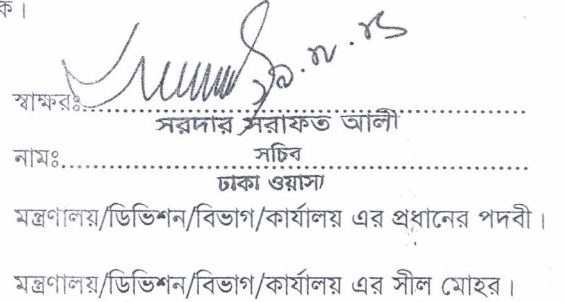 ক।
স্বাক্ষরঃ
সরদার সরাফত আলী
নামঃ সচিব
ঢাকা ওয়াসা
মন্ত্রণালয়/ডিভিশন/বিভাগ/কার্যালয় এর প্রধানের পদবী।
মন্ত্রণালয়/ডিভিশন/বিভাগ/কার্যালয় এর সীল মোহর।